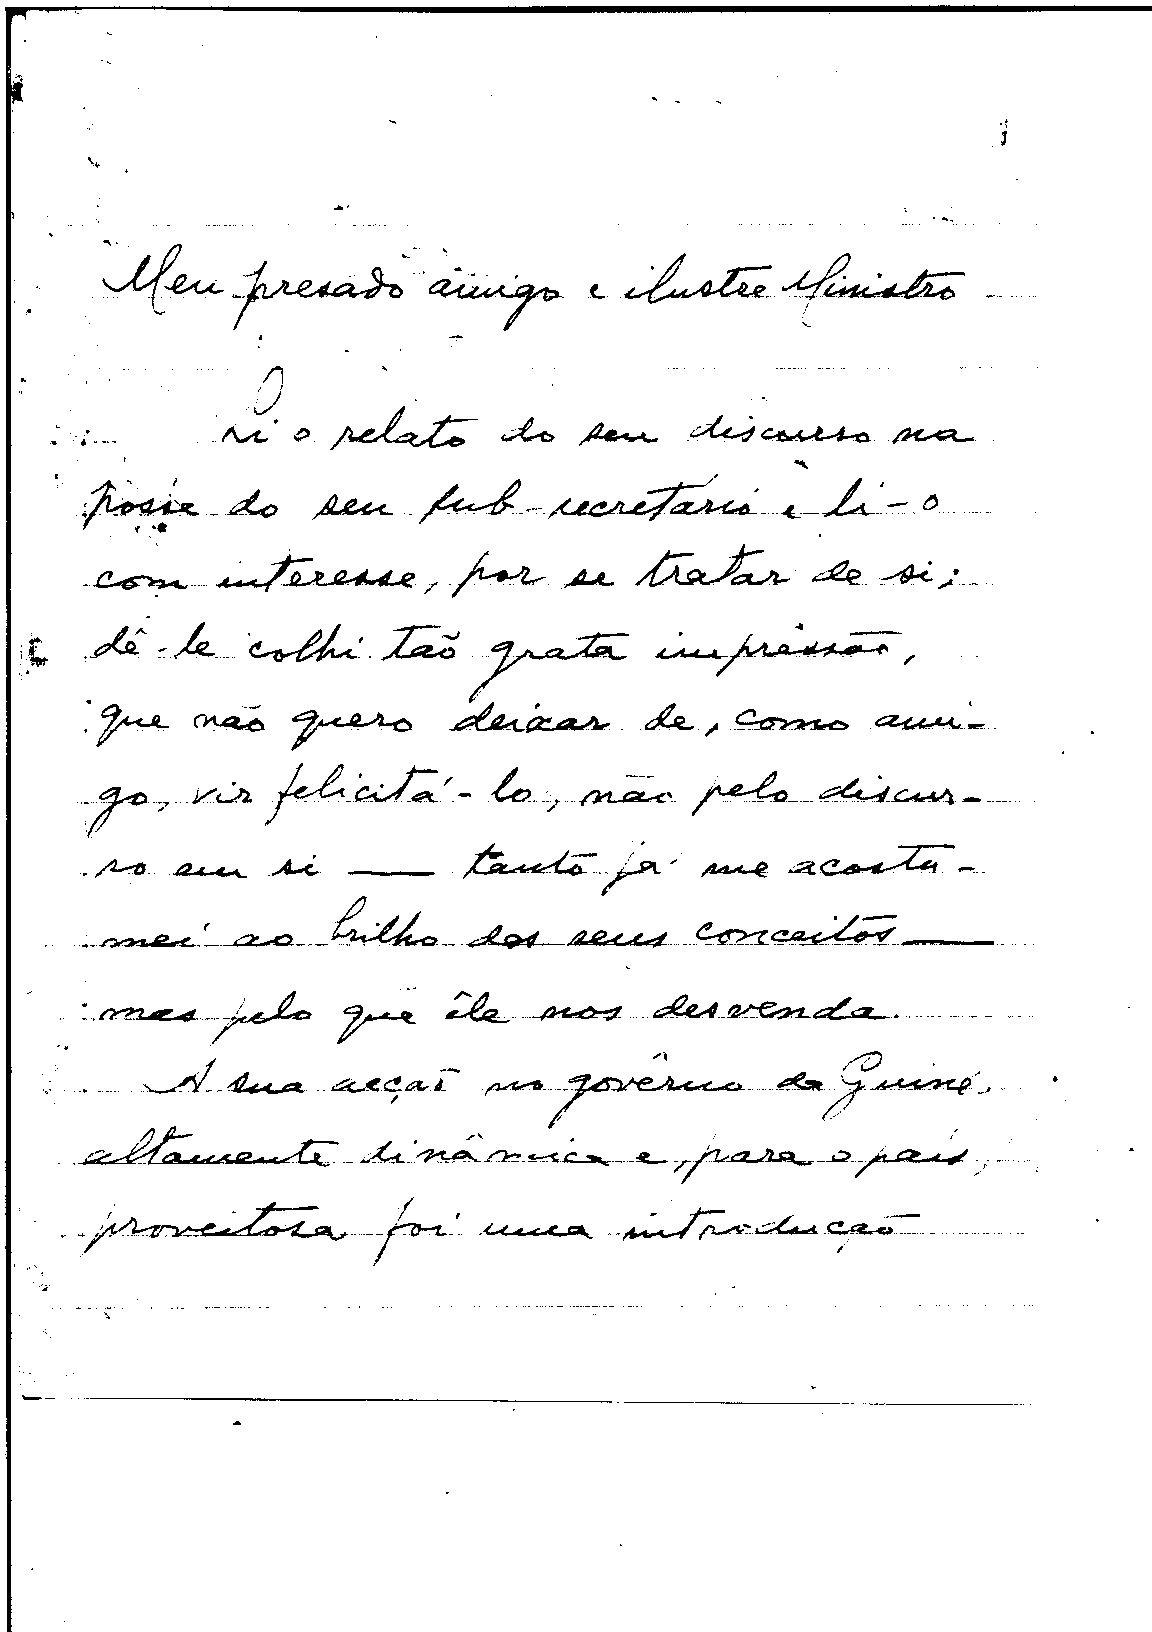 Meu presado amigo e ilustre Ministro
Li o relato do seu discurso na
posse do seu sub-secretário e li-o
com interesse, por se tratar de si;
dê-le colhi tão grata impressão,
que não quero deixar de, como ami-
go, vir felicitá-lo, não pelo discur-
so em si — tanto já me acostu-
mei ao brilho dos seus conceitos —
mas pelo que êle nos desvenda.
A sua acção no govêrno da Guiné,
altamente dinâmica e, para o país,
proveitosa foi uma introducção